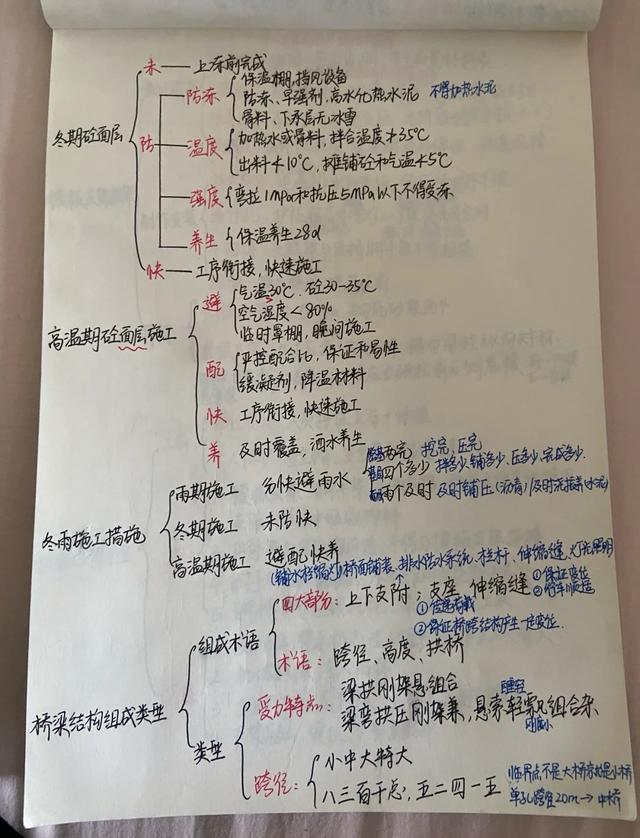 冬期砼面层
未——上冻前完成
防
防冻
保温棚,挡风设备
防冻、早强剂,高水化热水泥 不得加热水泥
骨料、下承层无冰雪
温度
加热水或骨料,拌合温度≯35℃
出料≮10℃,摊铺砼和气温≮5℃
强度 弯拉1MPa和抗压5MPa以下不得受冻
养生 保温养生28d
快——工序衔接,快速施工
高温期砼面层施工
避
气温30℃.砼30-35℃
空气湿度<80%
临时罩棚,晚间施工
配
严控配合比,保证和易性
缓凝剂,降温材料
快 工序衔接,快速施工
养 及时覆盖,洒水养生
冬雨施工措施
雨期施工 分快避雨水
两完 挖完,压完
四个多少 拌多少铺多少、压多少、完成多少.
两个及时 及时铺压(沥青)及时浇振养(水泥)
冬期施工 未防快
高温期施工 避配快养
桥面铺装、排水防水系统、栏杆、伸缩缝、灯光照明
桥梁结构组成类型
组成术语
四大部分:上下支附;支座 伸缩缝
①保证变位
②行车顺适
①传递荷载
②保证桥跨结构产生一定变位.
术语:跨径、高度、拱桥
类型
受力特点:
梁拱刚架悬组合
梁弯拱压刚架兼,悬索轻 组合杂
刚小
跨径:
小中大特大
八三百千总,五二四一五
临界点,不是大桥就是小桥
单孔跨径20m→中桥